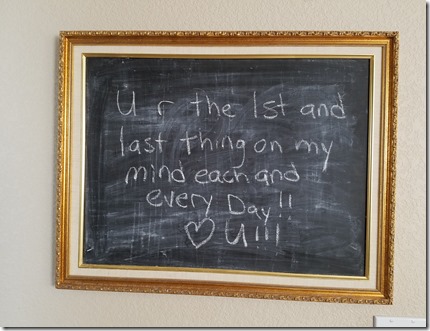 U r the 1st and
last thing on my
mind each and
every Day!!
♡ U!!!